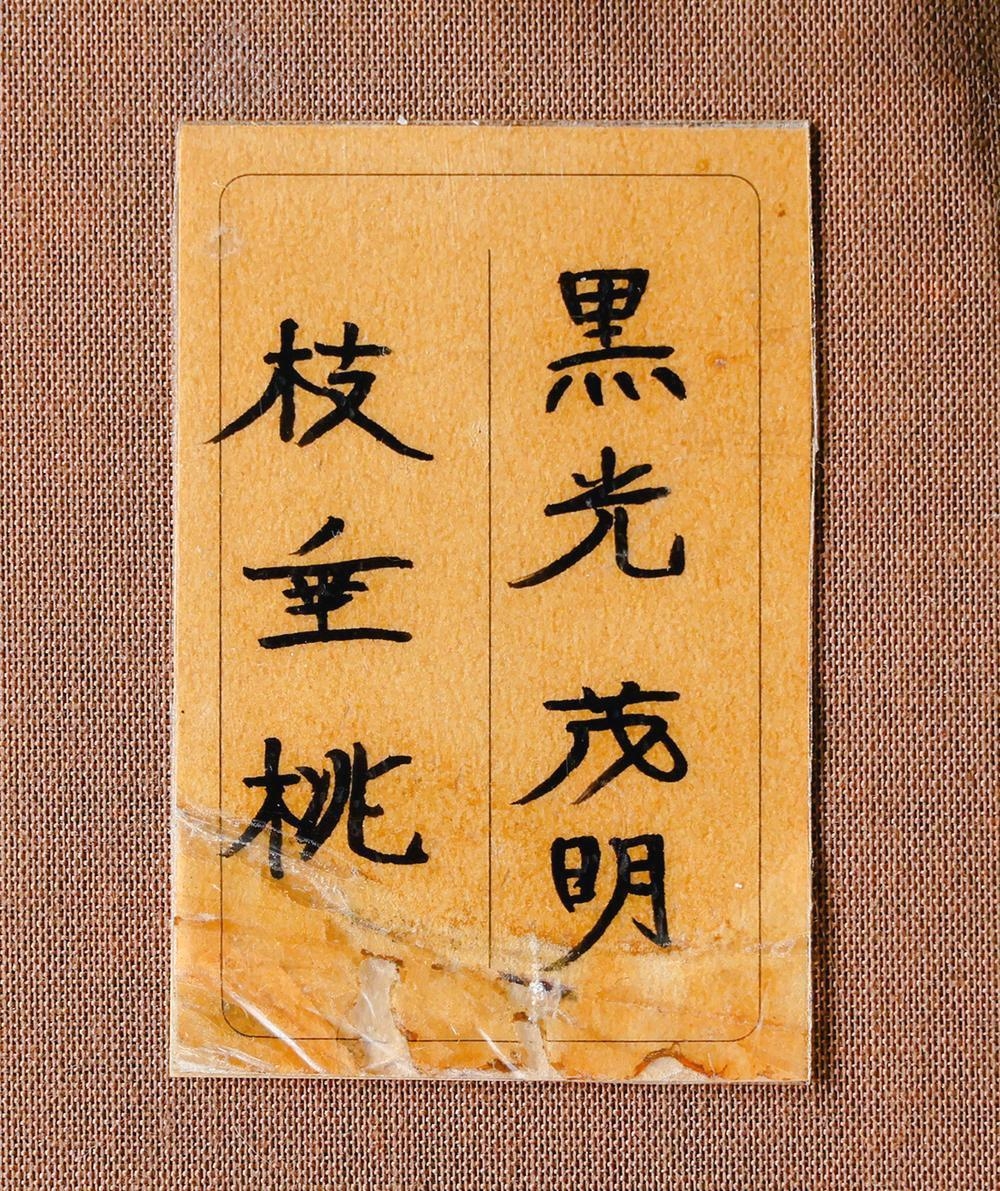 黒光茂明
枝垂桃